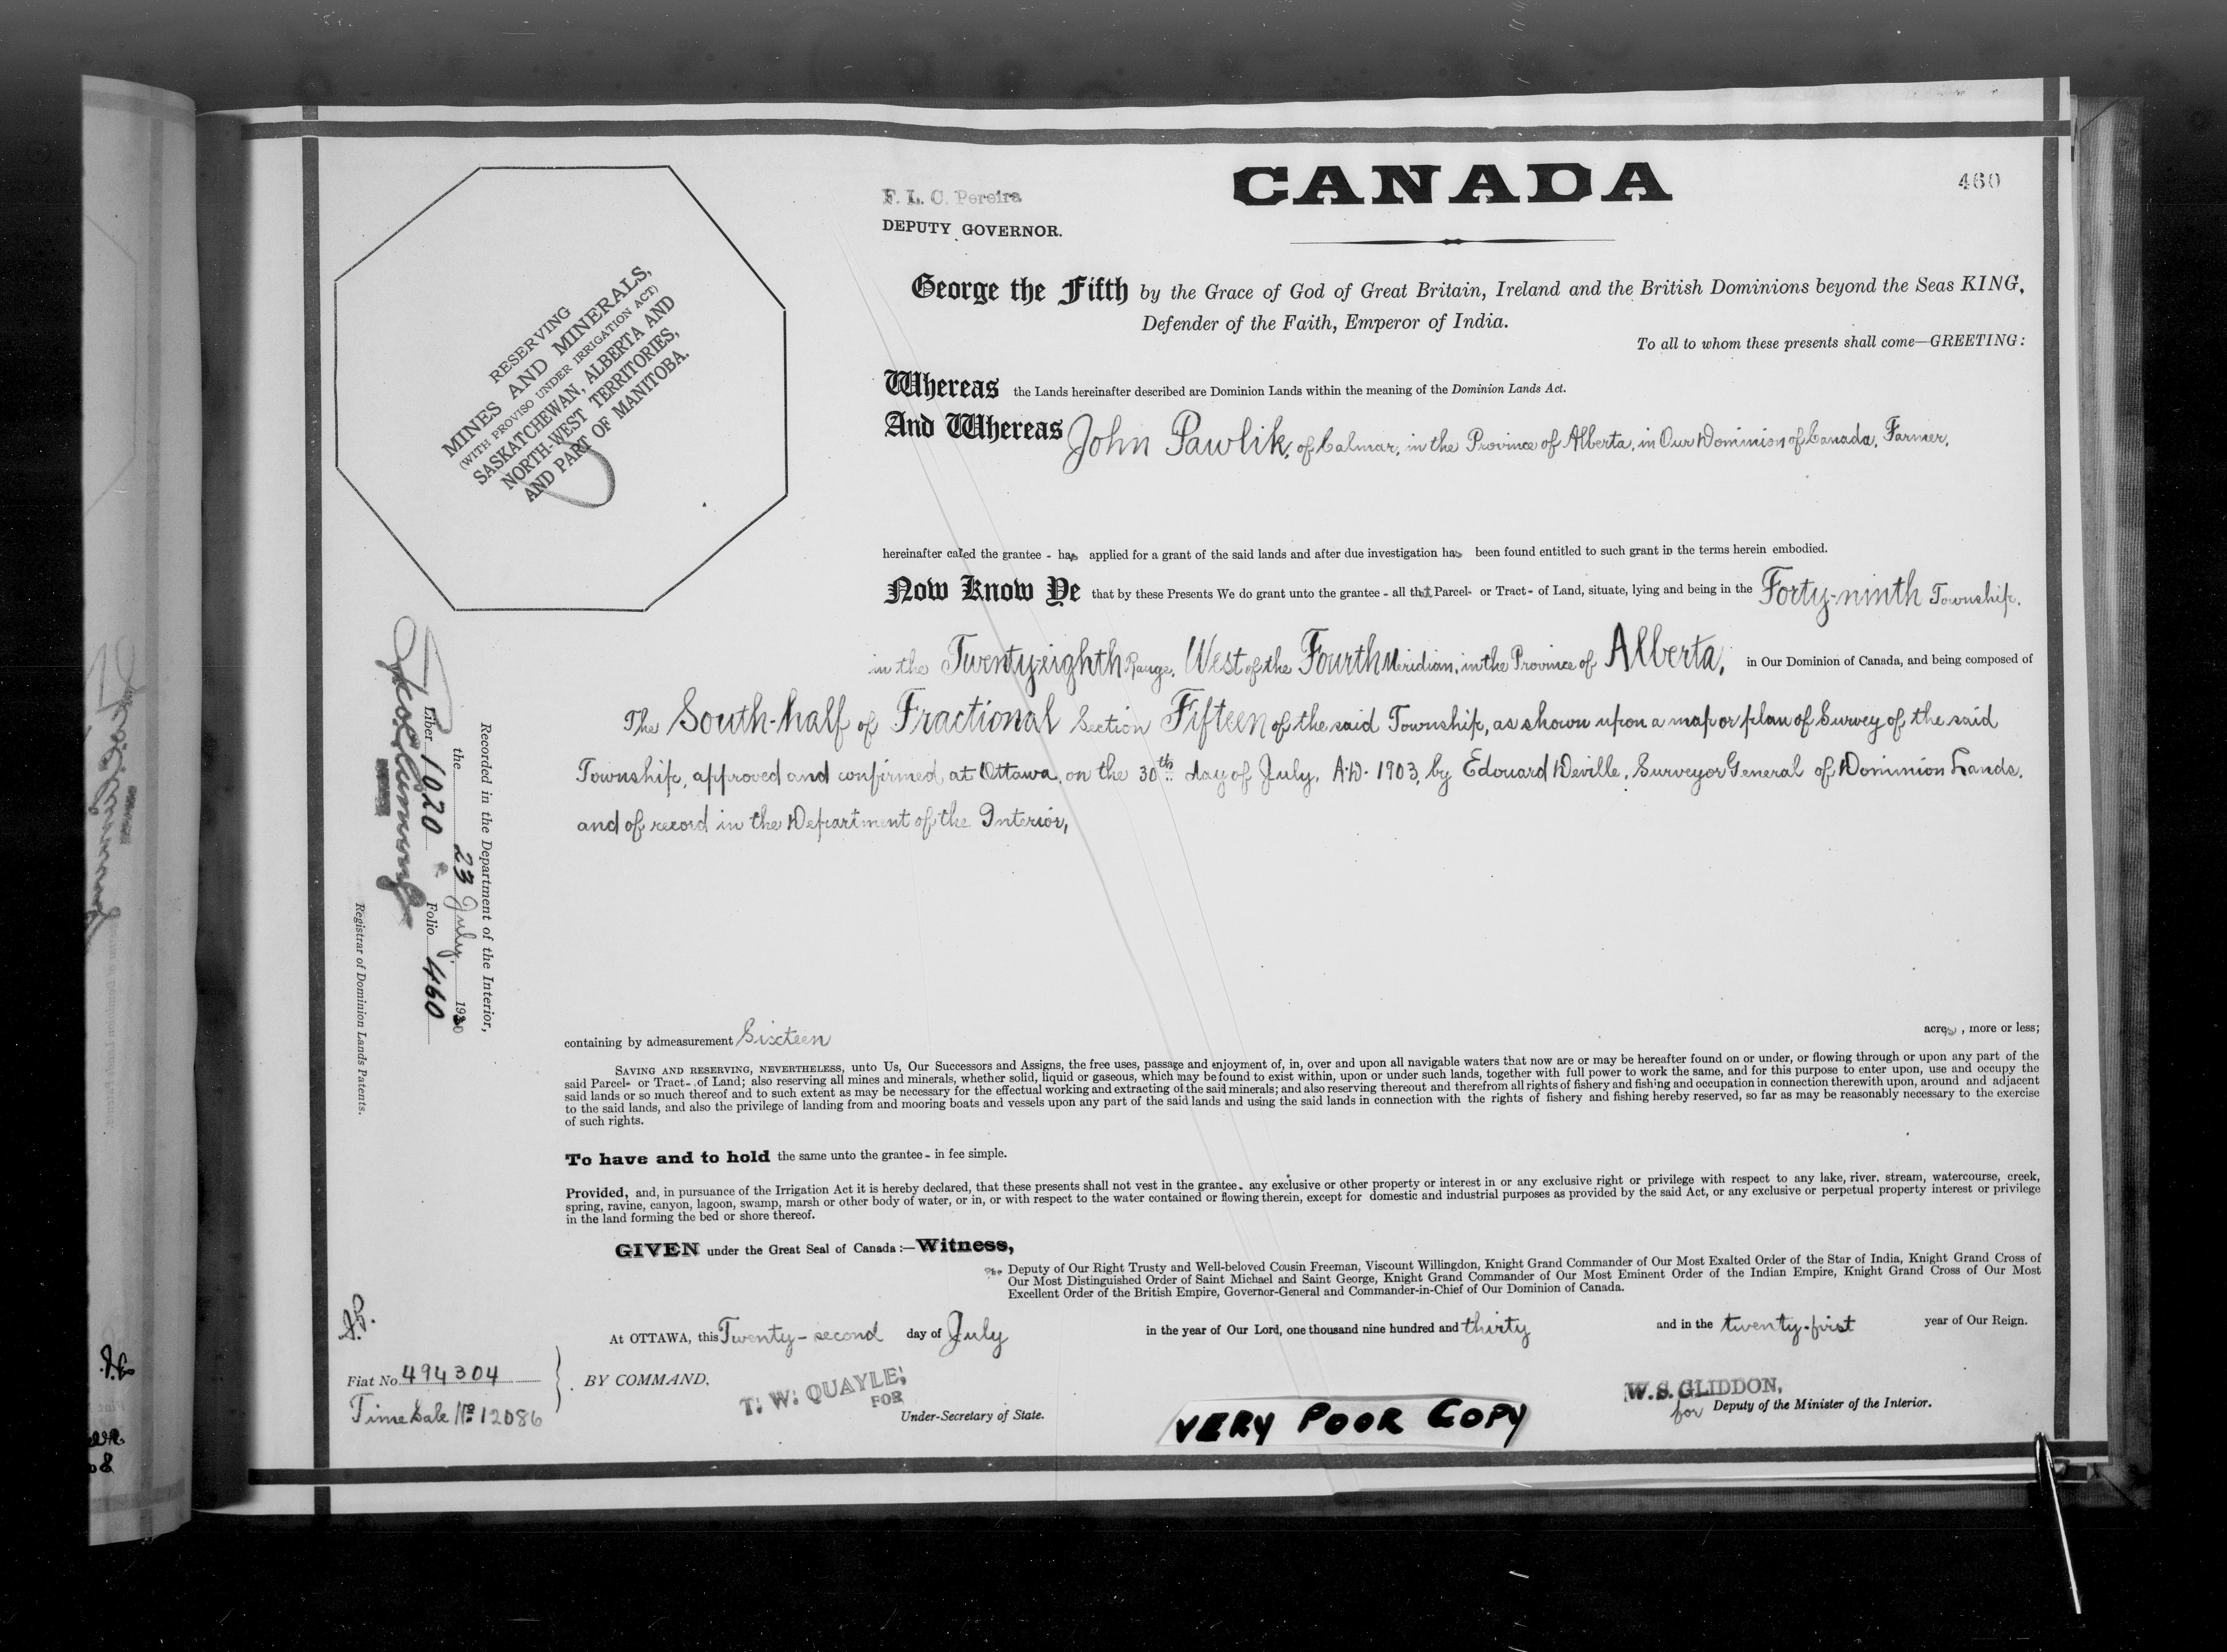 460
F. L. C. Pereira
DEPUTY GOVERNOR.
CANADA
RESERVING
MINES AND MINERALS,
(WITH PROVISO UNDER IRRIGATION ACT)
SASKATCHEWAN, ALBERTA AND
NORTH-WEST TERRITORIES,
AND PART OF MANITOBA.
George the Fifth by the Grace of God of Great Britain, Ireland and the British Dominions beyond the Seas KING,
Defender of the Faith, Emperor of India.
To all to whom these presents shall come—GREETING:
Whereas the Lands hereinafter described are Dominion Lands within the meaning of the Dominion Lands Act.
And Whereas John Pawlik, of Calmar, in the Province of Alberta, in Our Dominion of Canada, Farmer,
hereinafter called the grantee - has applied for a grant of the said lands and after due investigation has been found entitled to such grant in the terms herein embodied.
Now Know Ye that by these Presents We do grant unto the grantee - all that Parcel- or Tract- of Land, situate, lying and being in the Forty-ninth Township,
in the Twenty-eighth Range, West of the Fourth Meridian, in the Province of Alberta, in Our Dominion of Canada, and being composed of
The South-half of Fractional Section Fifteen of the said Township, as shown upon a map or plan of Survey of the said
Township, approved and confirmed at Ottawa, on the 30th day of July, A.D. 1903, by Edouard Deville, Surveyor General of Dominion Lands,
and of record in the Department of the Interior,
Recorded in the Department of the Interior,
the 23 July, 1930
Liber 1020 Folio 460
Registrar of Dominion Lands Patents.
containing by admeasurement Sixteen acres, more or less;
SAVING AND RESERVING, NEVERTHELESS, unto Us, Our Successors and Assigns, the free uses, passage and enjoyment of, in, over and upon all navigable waters that now are or may be hereafter found on or under, or flowing through or upon any part of the
said Parcel- or Tract- of Land; also reserving all mines and minerals, whether solid, liquid or gaseous, which may be found to exist within, upon or under such lands, together with full power to work the same, and for this purpose to enter upon, use and occupy the
said lands or so much thereof and to such extent as may be necessary for the effectual working and extracting of the said minerals; and also reserving thereout and therefrom all rights of fishery and fishing and occupation in connection therewith upon, around and adjacent
to the said lands, and also the privilege of landing from and mooring boats and vessels upon any part of the said lands and using the said lands in connection with the rights of fishery and fishing hereby reserved, so far as may be reasonably necessary to the exercise
of such rights.
To have and to hold the same unto the grantee - in fee simple.
Provided, and, in pursuance of the Irrigation Act it is hereby declared, that these presents shall not vest in the grantee - any exclusive or other property or interest in or any exclusive right or privilege with respect to any lake, river, stream, watercourse, creek,
spring, ravine, canyon, lagoon, swamp, marsh or other body of water, or in, or with respect to the water contained or flowing therein, except for domestic and industrial purposes as provided by the said Act, or any exclusive or perpetual property interest or privilege
in the land forming the bed or shore thereof.
GIVEN under the Great Seal of Canada:—Witness,
The Deputy of Our Right Trusty and Well-beloved Cousin Freeman, Viscount Willingdon, Knight Grand Commander of Our Most Exalted Order of the Star of India, Knight Grand Cross of
Our Most Distinguished Order of Saint Michael and Saint George, Knight Grand Commander of Our Most Eminent Order of the Indian Empire, Knight Grand Cross of Our Most
Excellent Order of the British Empire, Governor-General and Commander-in-Chief of Our Dominion of Canada.
At OTTAWA, this Twenty-second day of July in the year of Our Lord, one thousand nine hundred and thirty and in the twenty-first year of Our Reign.
Fiat No. 494304
Time Sale No. 12086
BY COMMAND.
T. W. QUAYLE,
FOR
Under-Secretary of State.
VERY POOR COPY
W. S. GLIDDON,
for Deputy of the Minister of the Interior.